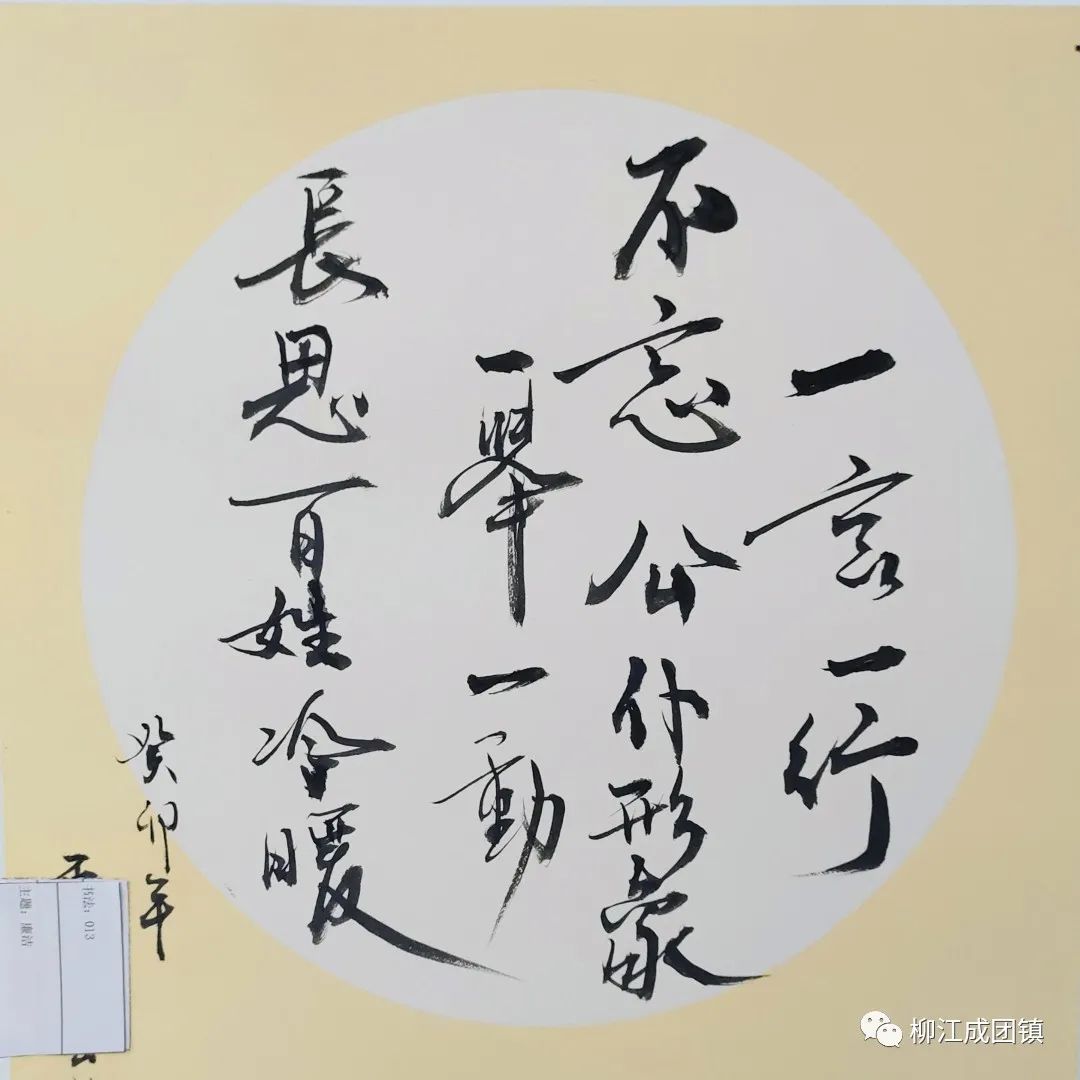 一言一行
不忘公仆形象
一舉一動
長思百姓冷暖
癸卯年
书法：013
主题：廉洁
柳江成团镇